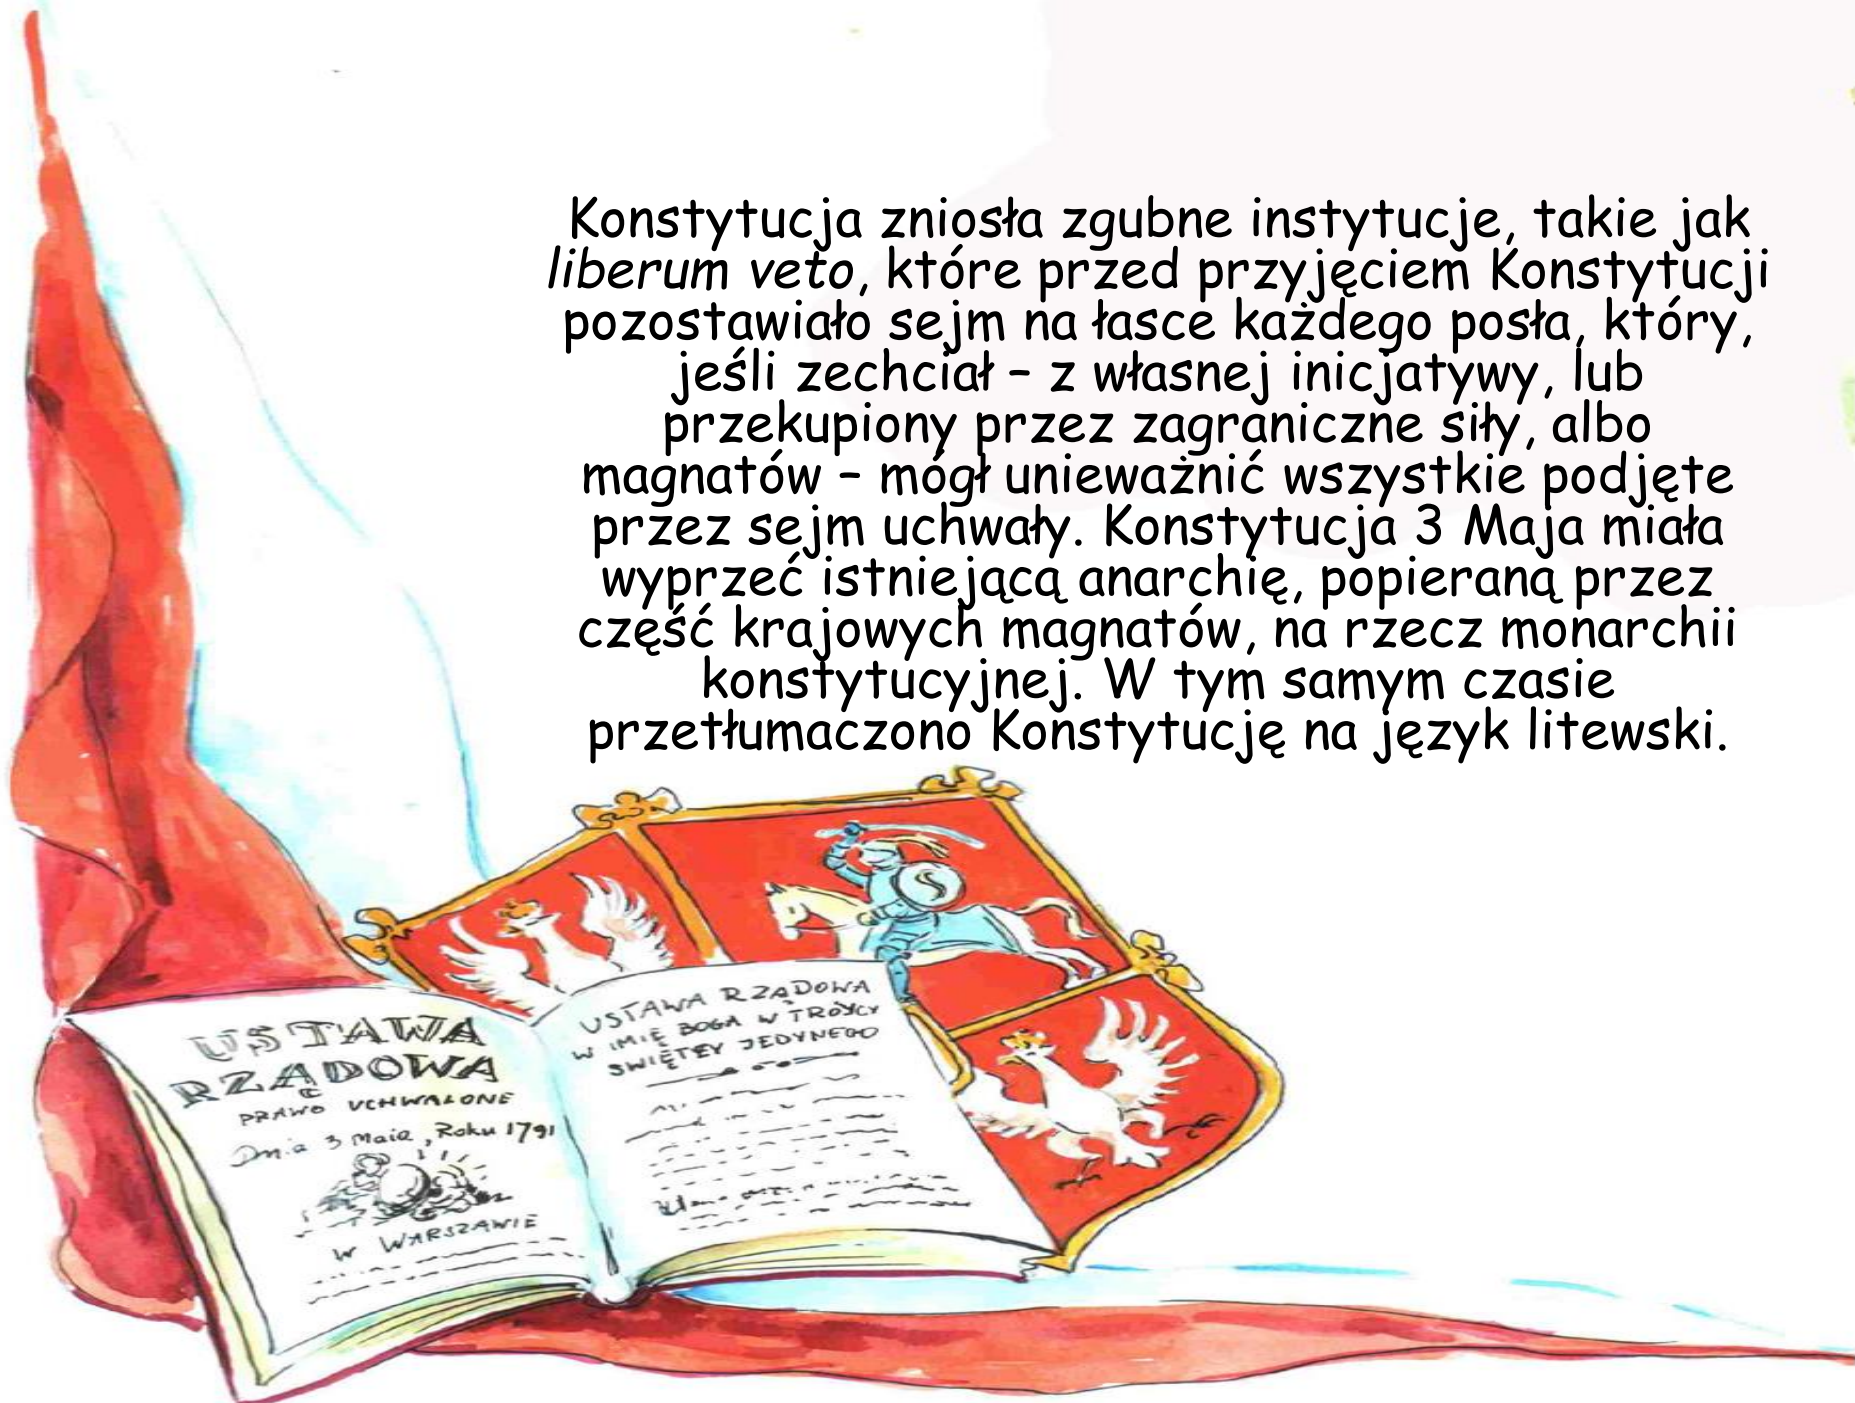 Konstytucja zniosła zgubne instytucje, takie jak
liberum veto, które przed przyjęciem Konstytucji
pozostawiało sejm na łasce każdego posła, który,
jeśli zechciał – z własnej inicjatywy, lub
przekupiony przez zagraniczne siły, albo
magnatów – mógł unieważnić wszystkie podjęte
przez sejm uchwały. Konstytucja 3 Maja miała
wyprzeć istniejącą anarchię, popieraną przez
część krajowych magnatów, na rzecz monarchii
konstytucyjnej. W tym samym czasie
przetłumaczono Konstytucję na język litewski.
USTAWA
RZĄDOWA
PRAWO UCHWALONE
Dnia 3 Maia, Roku 1791
W WARSZAWIE
USTAWA RZĄDOWA
W IMIĘ BOGA W TRÓYCY
SWIĘTEY JEDYNEGO